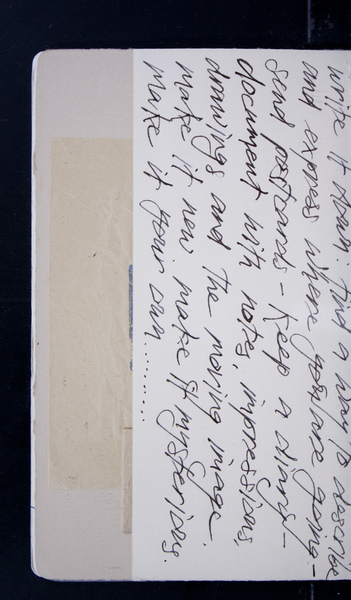 write it down. find a way to describe
and express where you are going –
send postcards – keep a diary –
document with notes, impressions,
drawings and the moving image.
make it new make it mysterious.
make it your own.........